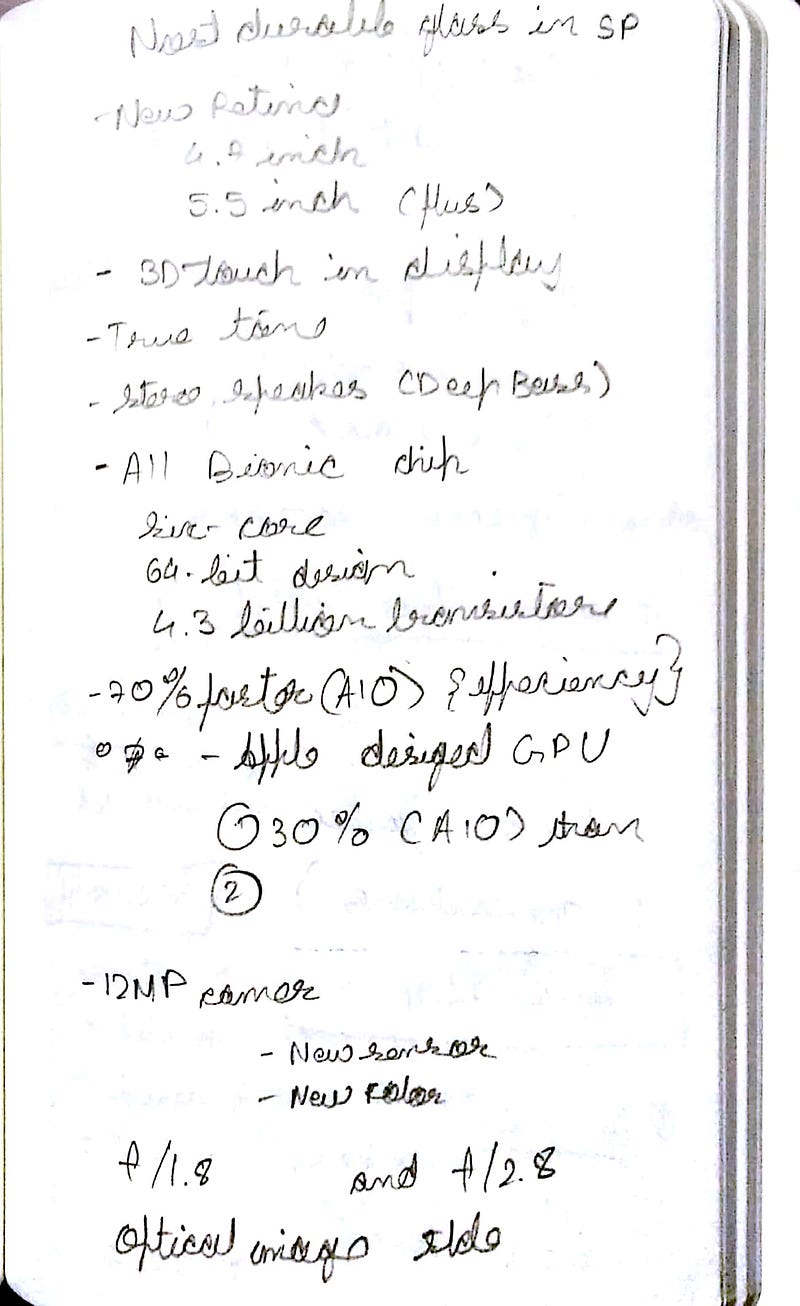 Most durable glass in SP
- New Retina
4.7 inch
5.5 inch (plus)
- 3D touch in display
- True tone
- Stereo speakes (Deep Bass)
- A11 Bionic chip
six-core
64-bit design
4.3 billion transistors
- 70% faster (A10) {efferiency}
- Apple desiged GPU
① 30% (A10) than
②
- 12MP camer
- New sensor
- New color
f/1.8 and f/2.8
Optical image